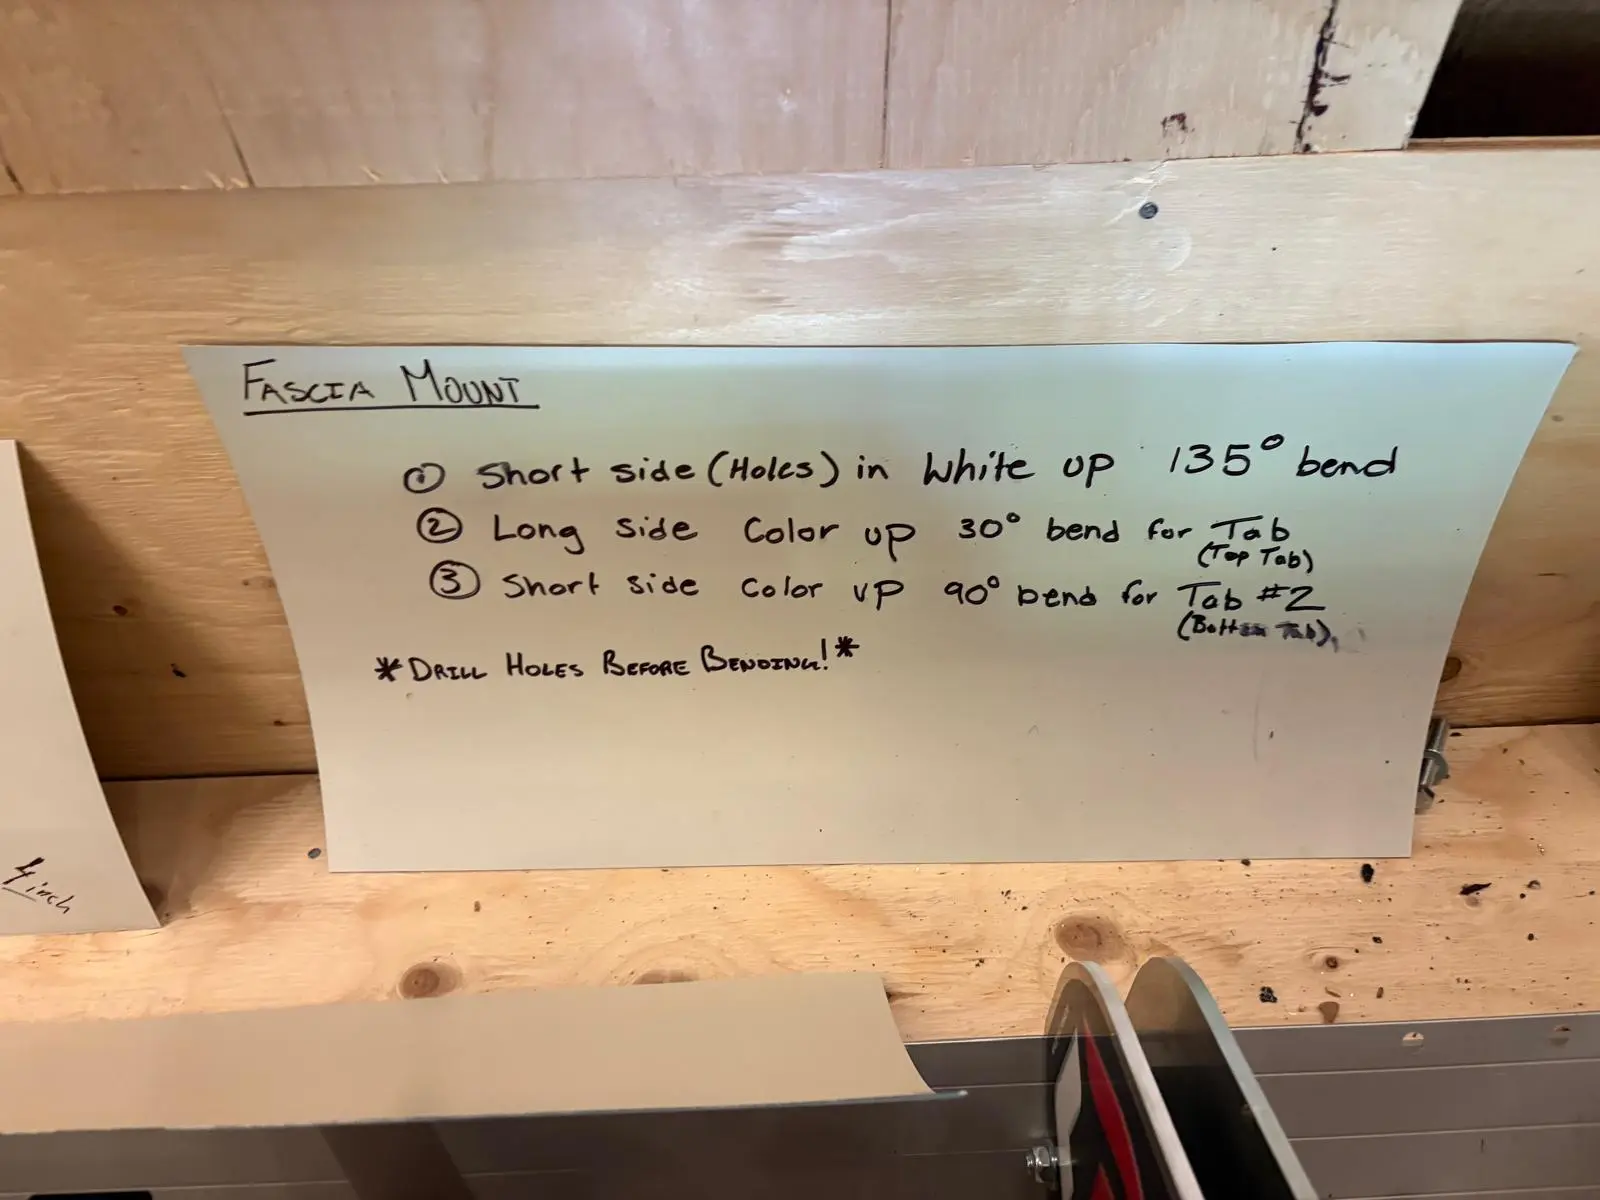 FASCIA MOUNT
① Short side (Holes) in White up 135° bend
② Long side Color up 30° bend for Tab
(Top Tab)
③ Short side Color up 90° bend for Tab #2
(Bottom Tab)
*DRILL HOLES BEFORE BENDING!*
4 inch